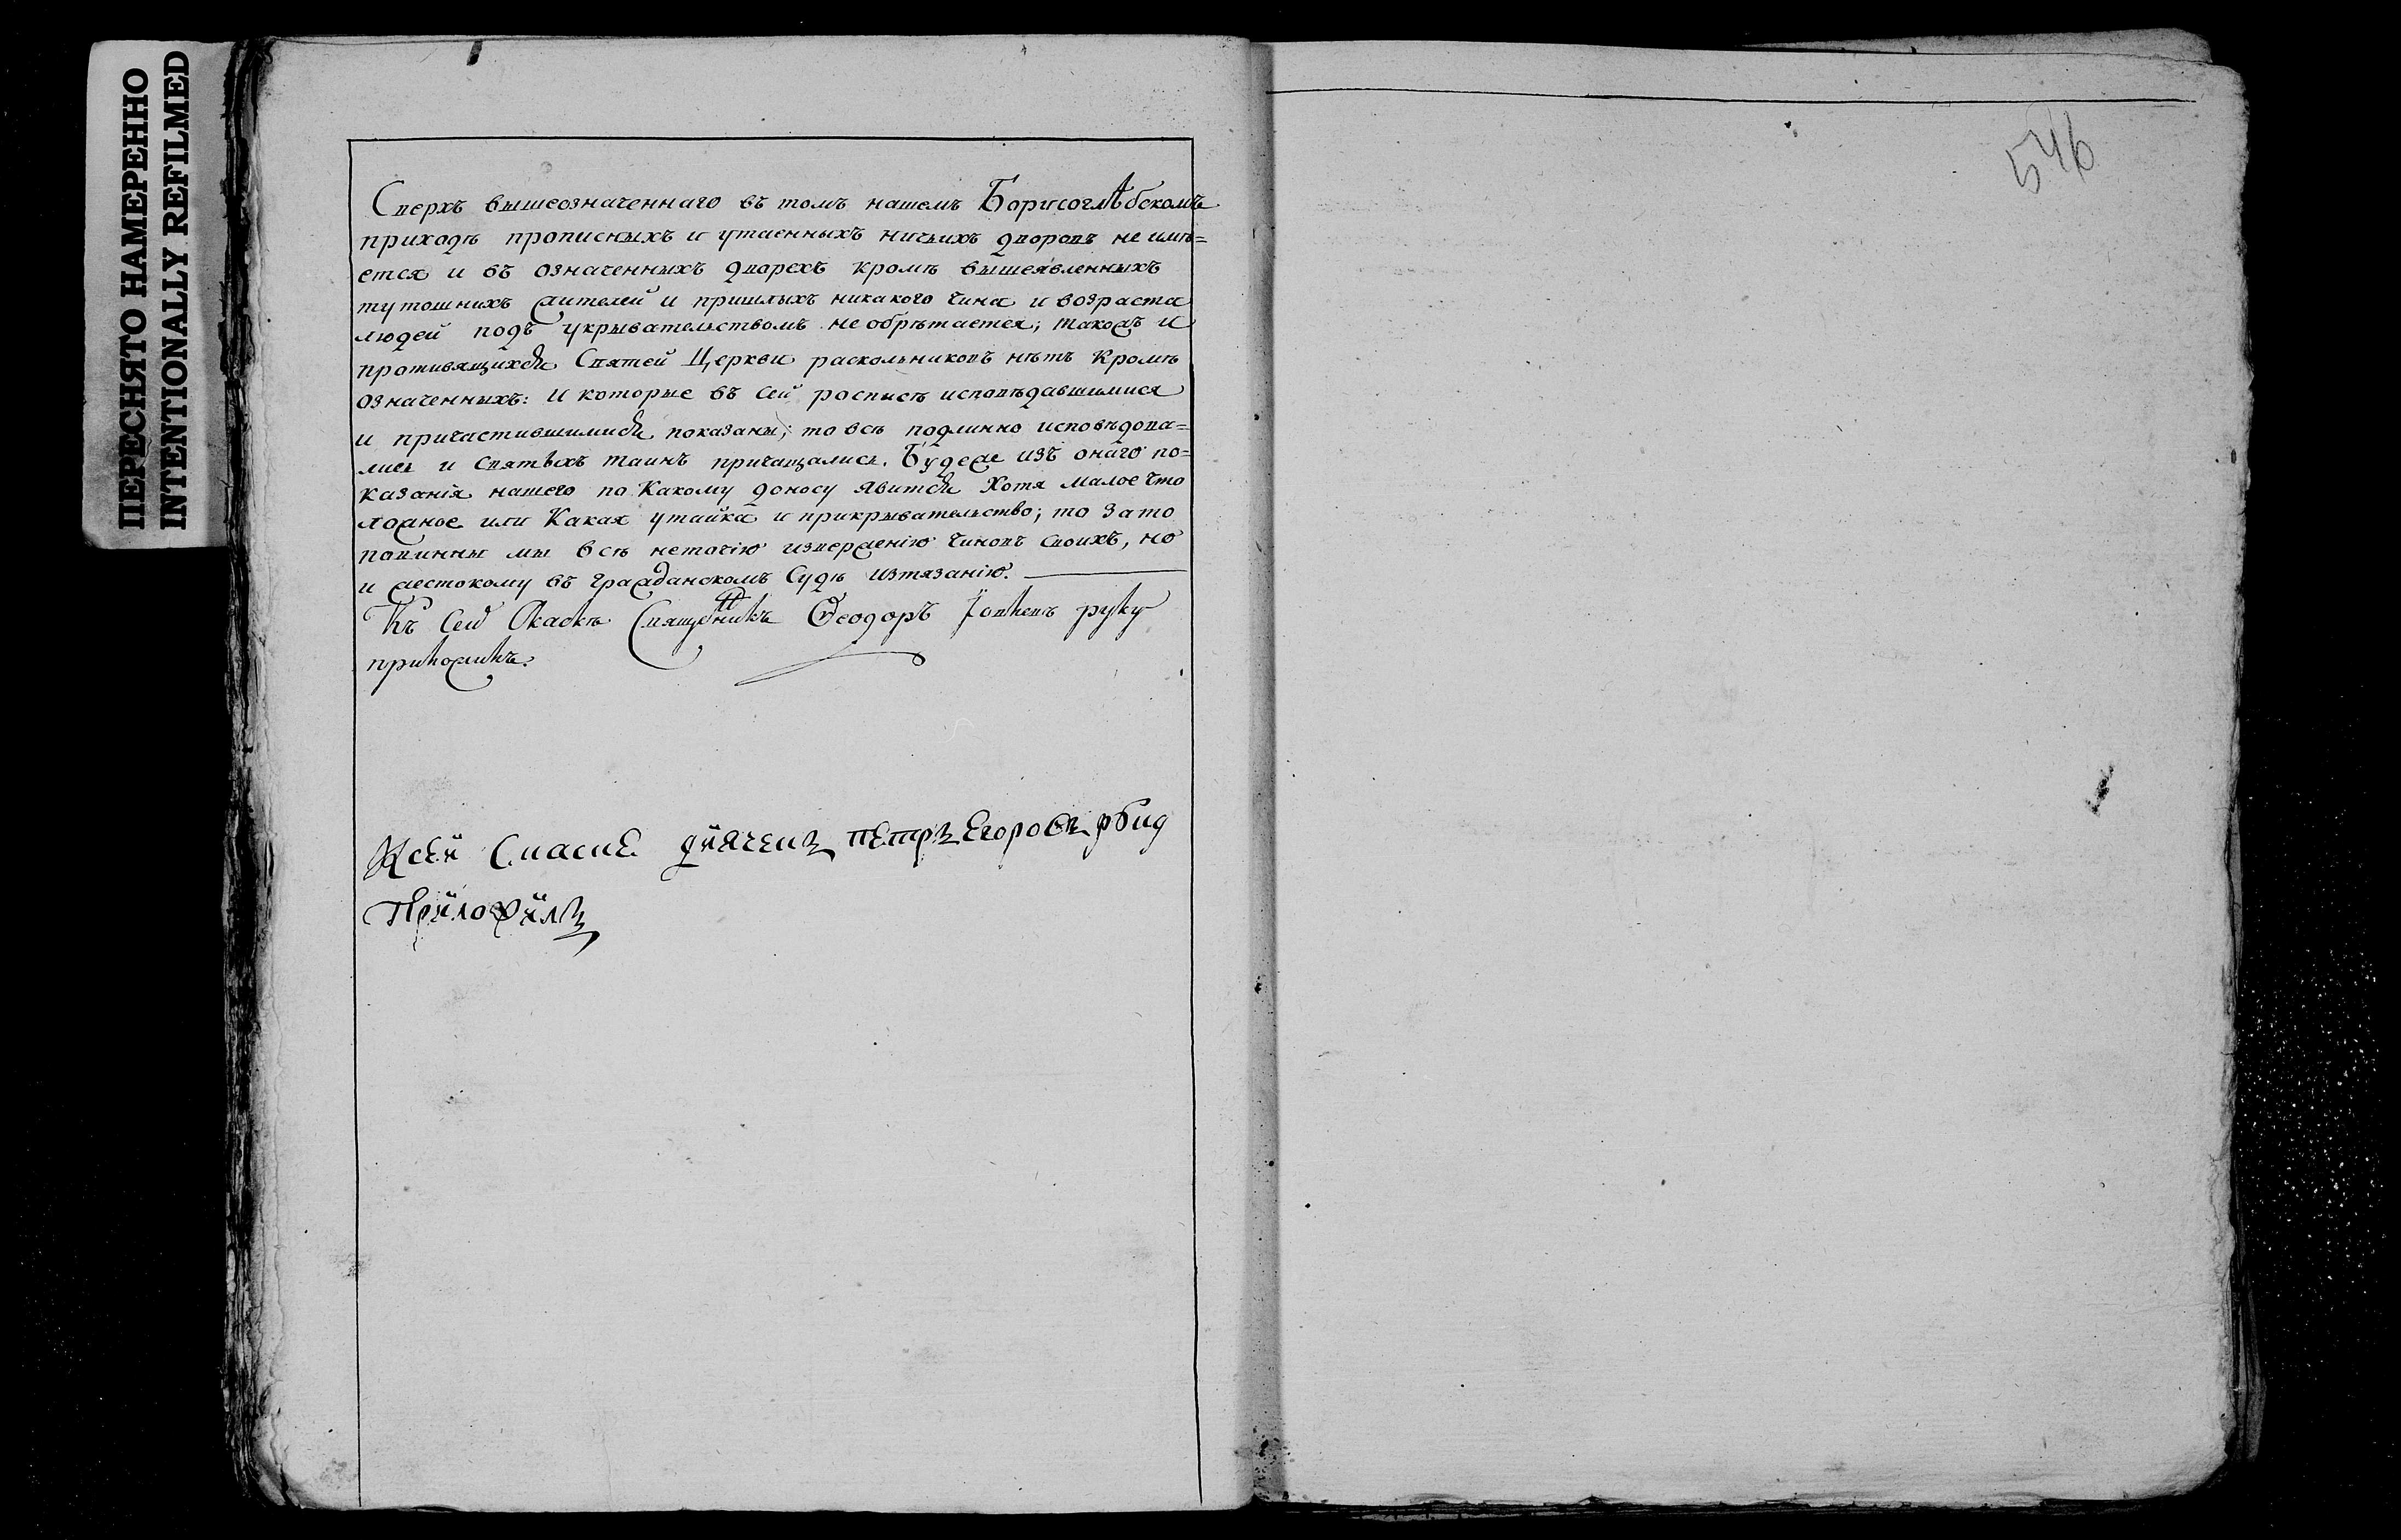 ПЕРЕСНЯТО НАМЕРЕННО
INTENTIONALLY REFILMED
546
Сверхъ вышеозначеннаго въ томъ нашемъ Борисоглѣбскомъ
приходѣ прописныхъ и утаенныхъ ничьихъ дворовъ не имѣ=
ется и въ означенныхъ дворехъ кромѣ вышеявленныхъ
тутошнихъ жителей и пришлыхъ никакого чина и возраста
людей подъ укрывательствомъ не обрѣтается; такожъ и
противящихся Святей Церкви раскольниковъ нѣтъ кромѣ
означенныхъ: и которые въ сей росписѣ исповѣдавшимися
и причастившимися показаны; то всѣ подлинно исповѣдова=
лись и Святыхъ таинъ причащались. Будеже изъ онаго по=
казанія нашего по какому доносу явится хотя малое что
ложное или какая утайка и прикрывательство; то за то
повинны мы всѣ неточію извержению чиновъ своихъ, но
и жестокому въ гражданскомъ судѣ изтязанію.
Къ сей скаскѣ Священникъ Ѳеодоръ руку
приложилъ.
Ксеи Скаске петръ Егоровъ
приложилъ